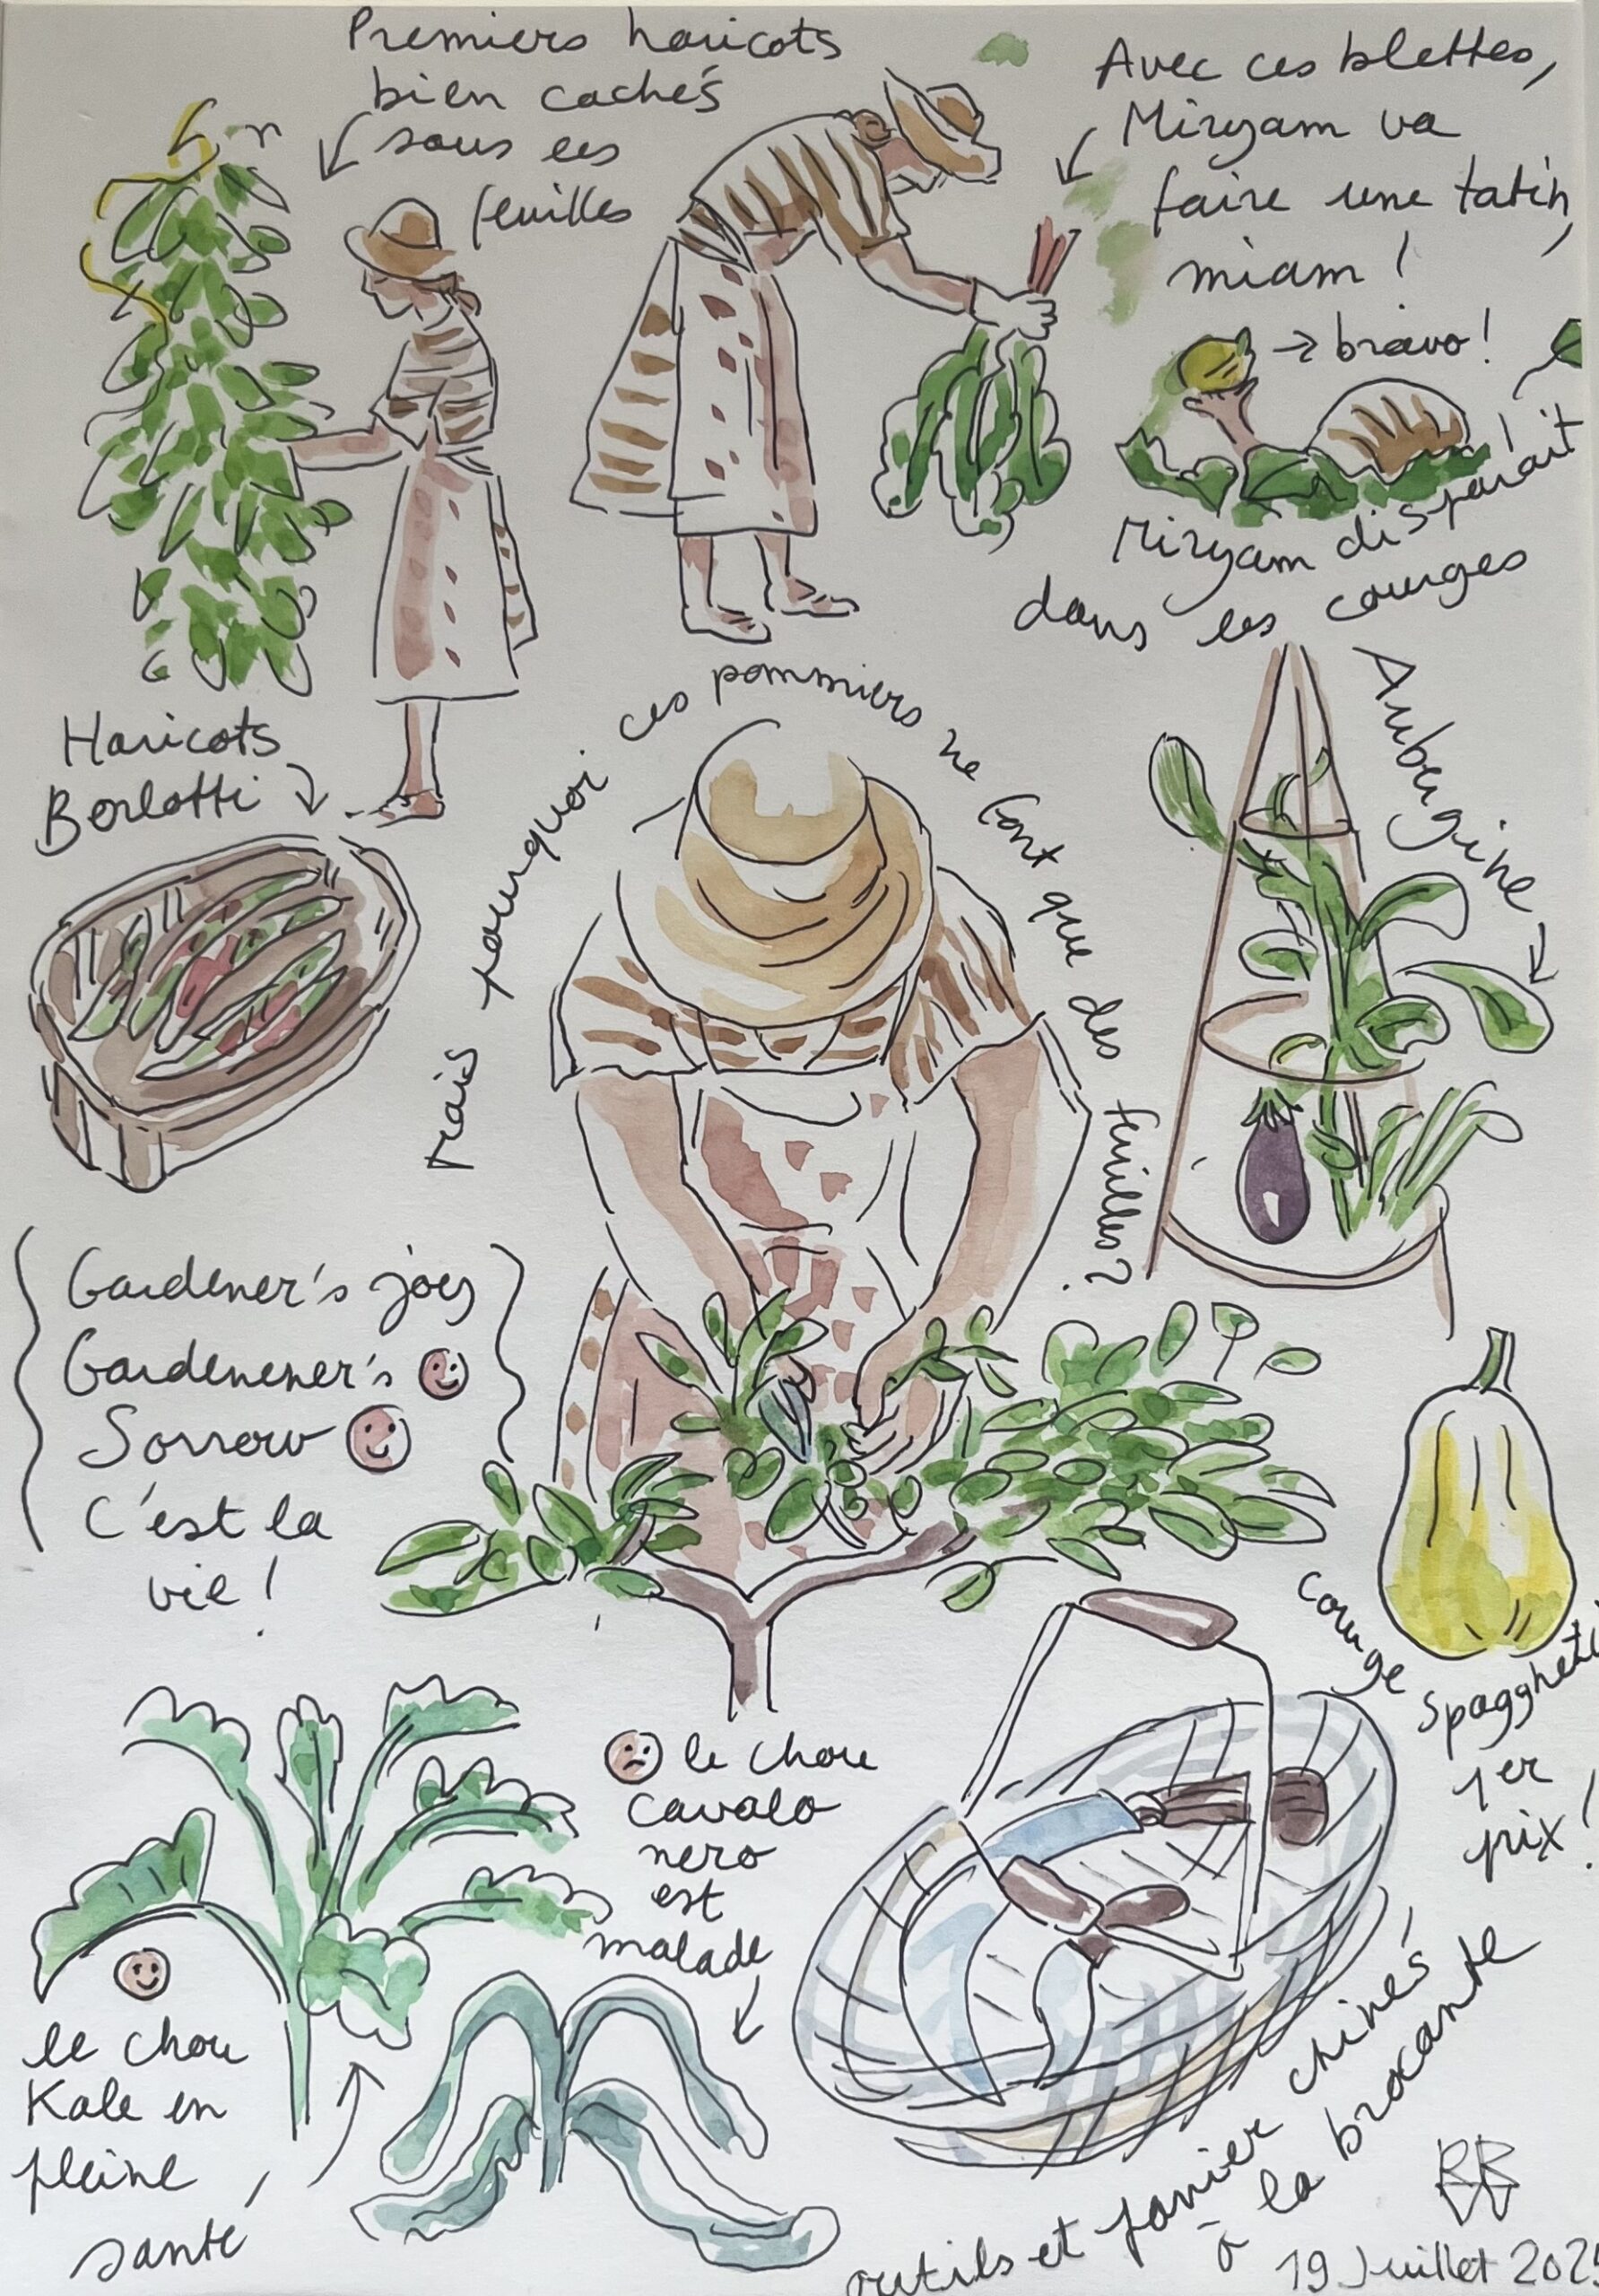 Premiers haricots
bien cachés
sous les
feuilles
Avec ces blettes,
Miryam va
faire une tatin,
miam !
→ bravo !
Miryam disparait
dans les courges
Haricots
Borlotti
Mais pourquoi ces pommiers ne font que des feuilles ?
Aubergine
Gardener's joy
Gardenener's
Sorrow
C'est la
vie !
courge
spagghetti
1er
prix !
le chou
cavalo
nero
est
malade
le chou
Kale en
pleine
santé
outils et panier chinés
à la brocante
RB
19 Juillet 2025